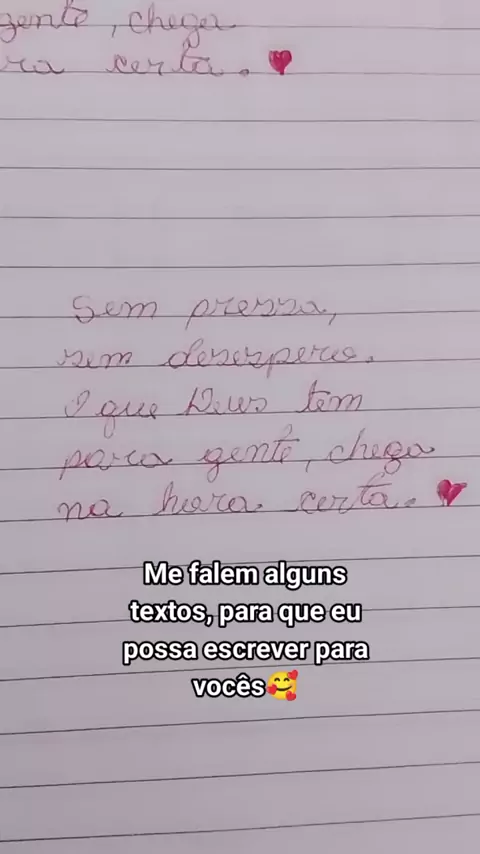 gente, chega
ra certa.
Sem pressa,
sem desespero.
O que Deus tem
para gente, chega
na hora certa.
Me falem alguns
textos, para que eu
possa escrever para
vocês🥰